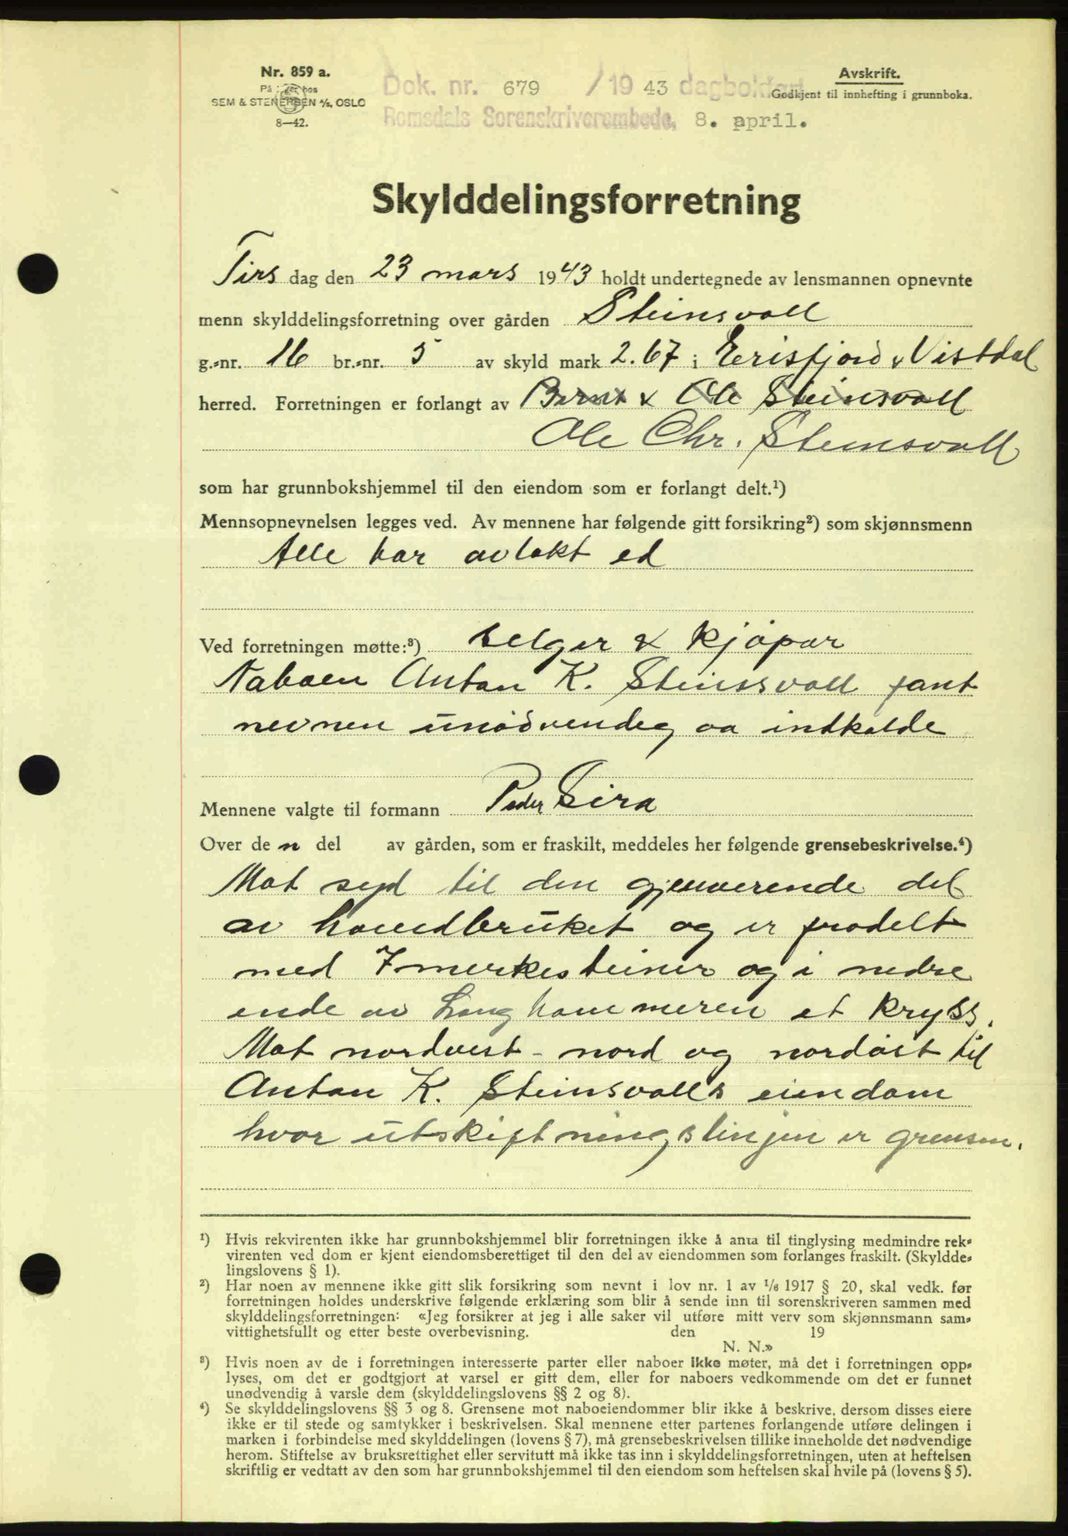 Nr. 859 a.
SEM & STENERSEN A/S, OSLO
8—42.
Dok. nr. 679 /1943 dagbokført
Romsdals Sorenskriverembede, 8. april.
Avskrift.
Godkjent til innhefting i grunnboka.
Skylddelingsforretning
Tirs dag den 23 mars 1943 holdt undertegnede av lensmannen opnevnte
menn skylddelingsforretning over gården Steinsvoll
g.-nr. 16 br.-nr. 5 av skyld mark 2.67 i Erisfjord & Vistdal
herred. Forretningen er forlangt av Bernt & Ole Steinsvoll
Ole Chr. Steinsvoll
som har grunnbokshjemmel til den eiendom som er forlangt delt.¹)
Mennsopnevnelsen legges ved. Av mennene har følgende gitt forsikring²) som skjønnsmenn
Alle har avlakt ed
Ved forretningen møtte:³) selger & kjøpar
Naboen Anton K. Steinssvoll fant
nevnen unödvendeg aa indkalde
Mennene valgte til formann Peder Sira
Over de n del av gården, som er fraskilt, meddeles her følgende grensebeskrivelse.⁴)
Mot syd til den gjenverende del
av hovedbruket og er fradelt
med 7 merkesteiner og i nedre
ende av Langhammeren et kryss.
Mot nordvest - nord og nordöst til
Anton K. Steinsvolls eiendom
hvor utskiftningslinjen er grensen.
¹) Hvis rekvirenten ikke har grunnbokshjemmel blir forretningen ikke å anta til tinglysing medmindre rek-
virenten ved dom er kjent eiendomsberettiget til den del av eiendommen som forlanges fraskilt. (Skyldde-
lingslovens § 1).
²) Har noen av mennene ikke gitt slik forsikring som nevnt i lov nr. 1 av ¹/₆ 1917 § 20, skal vedk. før
forretningen holdes underskrive følgende erklæring som blir å sende inn til sorenskriveren sammen med
skylddelingsforretningen: «Jeg forsikrer at jeg i alle saker vil utføre mitt verv som skjønnsmann sam-
vittighetsfullt og etter beste overbevisning. den 19
N. N.»
³) Hvis noen av de i forretningen interesserte parter eller naboer ikke møter, må det i forretningen opp-
lyses, om det er godtgjort at varsel er gitt dem, eller for naboers vedkommende om det er funnet
unødvendig å varsle dem (skylddelingslovens §§ 2 og 8).
⁴) Se skylddelingslovens §§ 3 og 8. Grensene mot naboeiendommer blir ikke å beskrive, dersom disses eiere
ikke er til stede og samtykker i beskrivelsen. Skal mennene etter partenes forlangende utføre delingen i
marken i forbindelse med skylddelingen (lovens § 7), må grensebeskrivelsen tillike inneholde det nødvendige
herom. Stiftelse av bruksrettighet eller servitutt må ikke tas inn i skylddelingsforretningen, uten at heftelsen
skriftlig er vedtatt av den som har grunnbokshjemmel til den eiendom som heftelsen skal hvile på (lovens § 5).